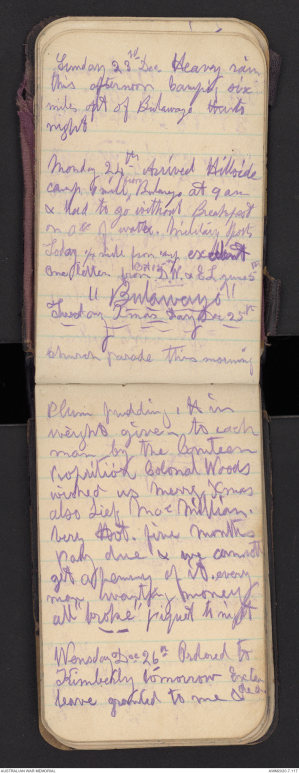 Sunday 23rd Dec Heavy rain
this afternoon camping six
miles out of Bulawayo
night
Monday 24th Arrived Hillside
camp 3 mile from Bulawayo at 9 am
& had to go without Breakfast
on a/c of water. Military Sports
today ½ mile from camp excellent
one letter from D.W. & E.L.
"Bulawayo"
Tuesday Xmas Day Dec 25th
Church parade this morning
Plum pudding 1 lb in
weight given to each
man by the Canteen
Colonal Woods
wished us merry Xmas
also Lief MacMillian.
Very Hot. five months
pay due & we cannot
get a penny of it. every
man wanting money
all "broke" piquet to night
Wensday Dec 26th Ordered to
Kimberley tomorrow
leave granted to me
AUSTRALIAN WAR MEMORIAL